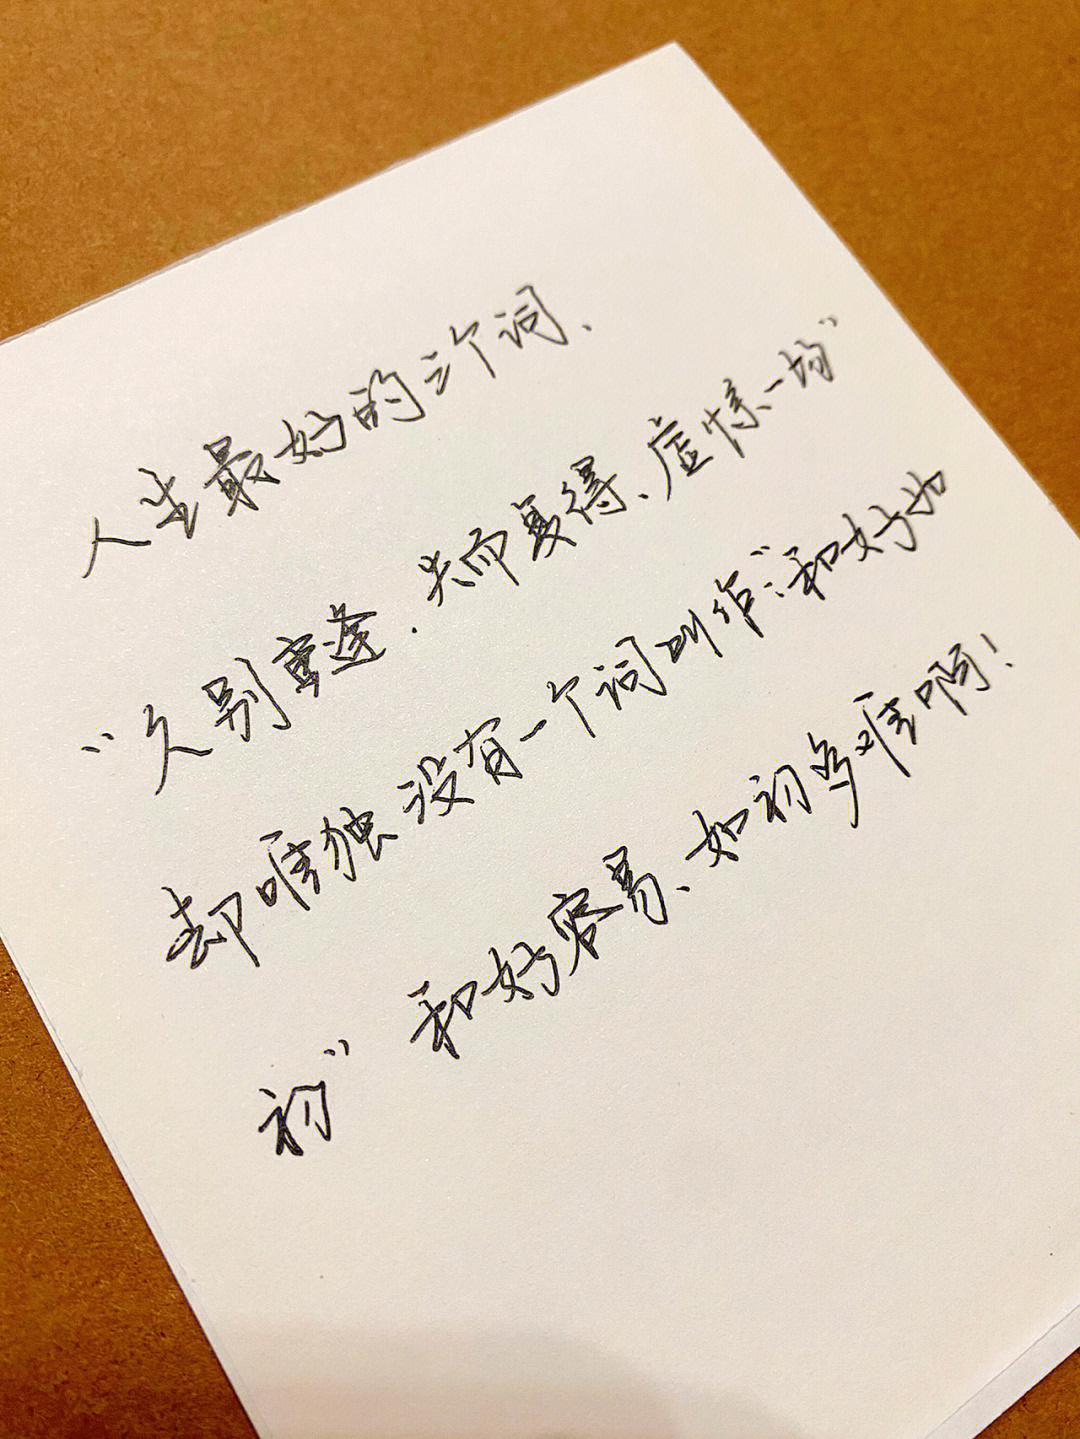 人生最好的三个词、
“久别重逢.失而复得、虚惊一场”
却唯独没有一个词叫作“和好如
初”和好容易、如初多难啊!